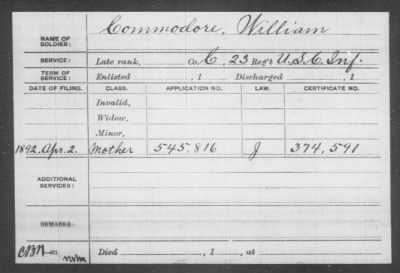 Commodore, William
NAME OF SOLDIER:
SERVICE: Late rank, Co. C, 23 Reg't U.S.C. Inf.
TERM OF SERVICE: Enlisted , 1 Discharged , 1
DATE OF FILING. CLASS. APPLICATION NO. LAW. CERTIFICATE NO.
Invalid,
Widow,
Minor,
1892, Apr. 2. Mother 545.816 J 374,591
ADDITIONAL SERVICES:
REMARKS:
Died , 1 , at